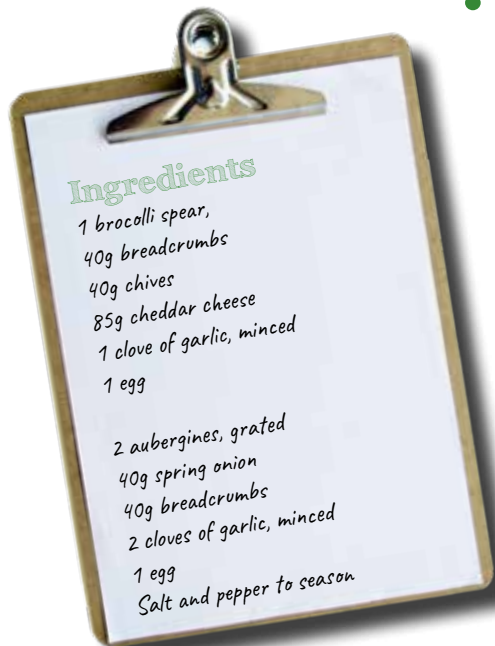 Ingredients
1 brocolli spear,
40g breadcrumbs
40g chives
85g cheddar cheese
1 clove of garlic, minced
1 egg
2 aubergines, grated
40g spring onion
40g breadcrumbs
2 cloves of garlic, minced
1 egg
Salt and pepper to season